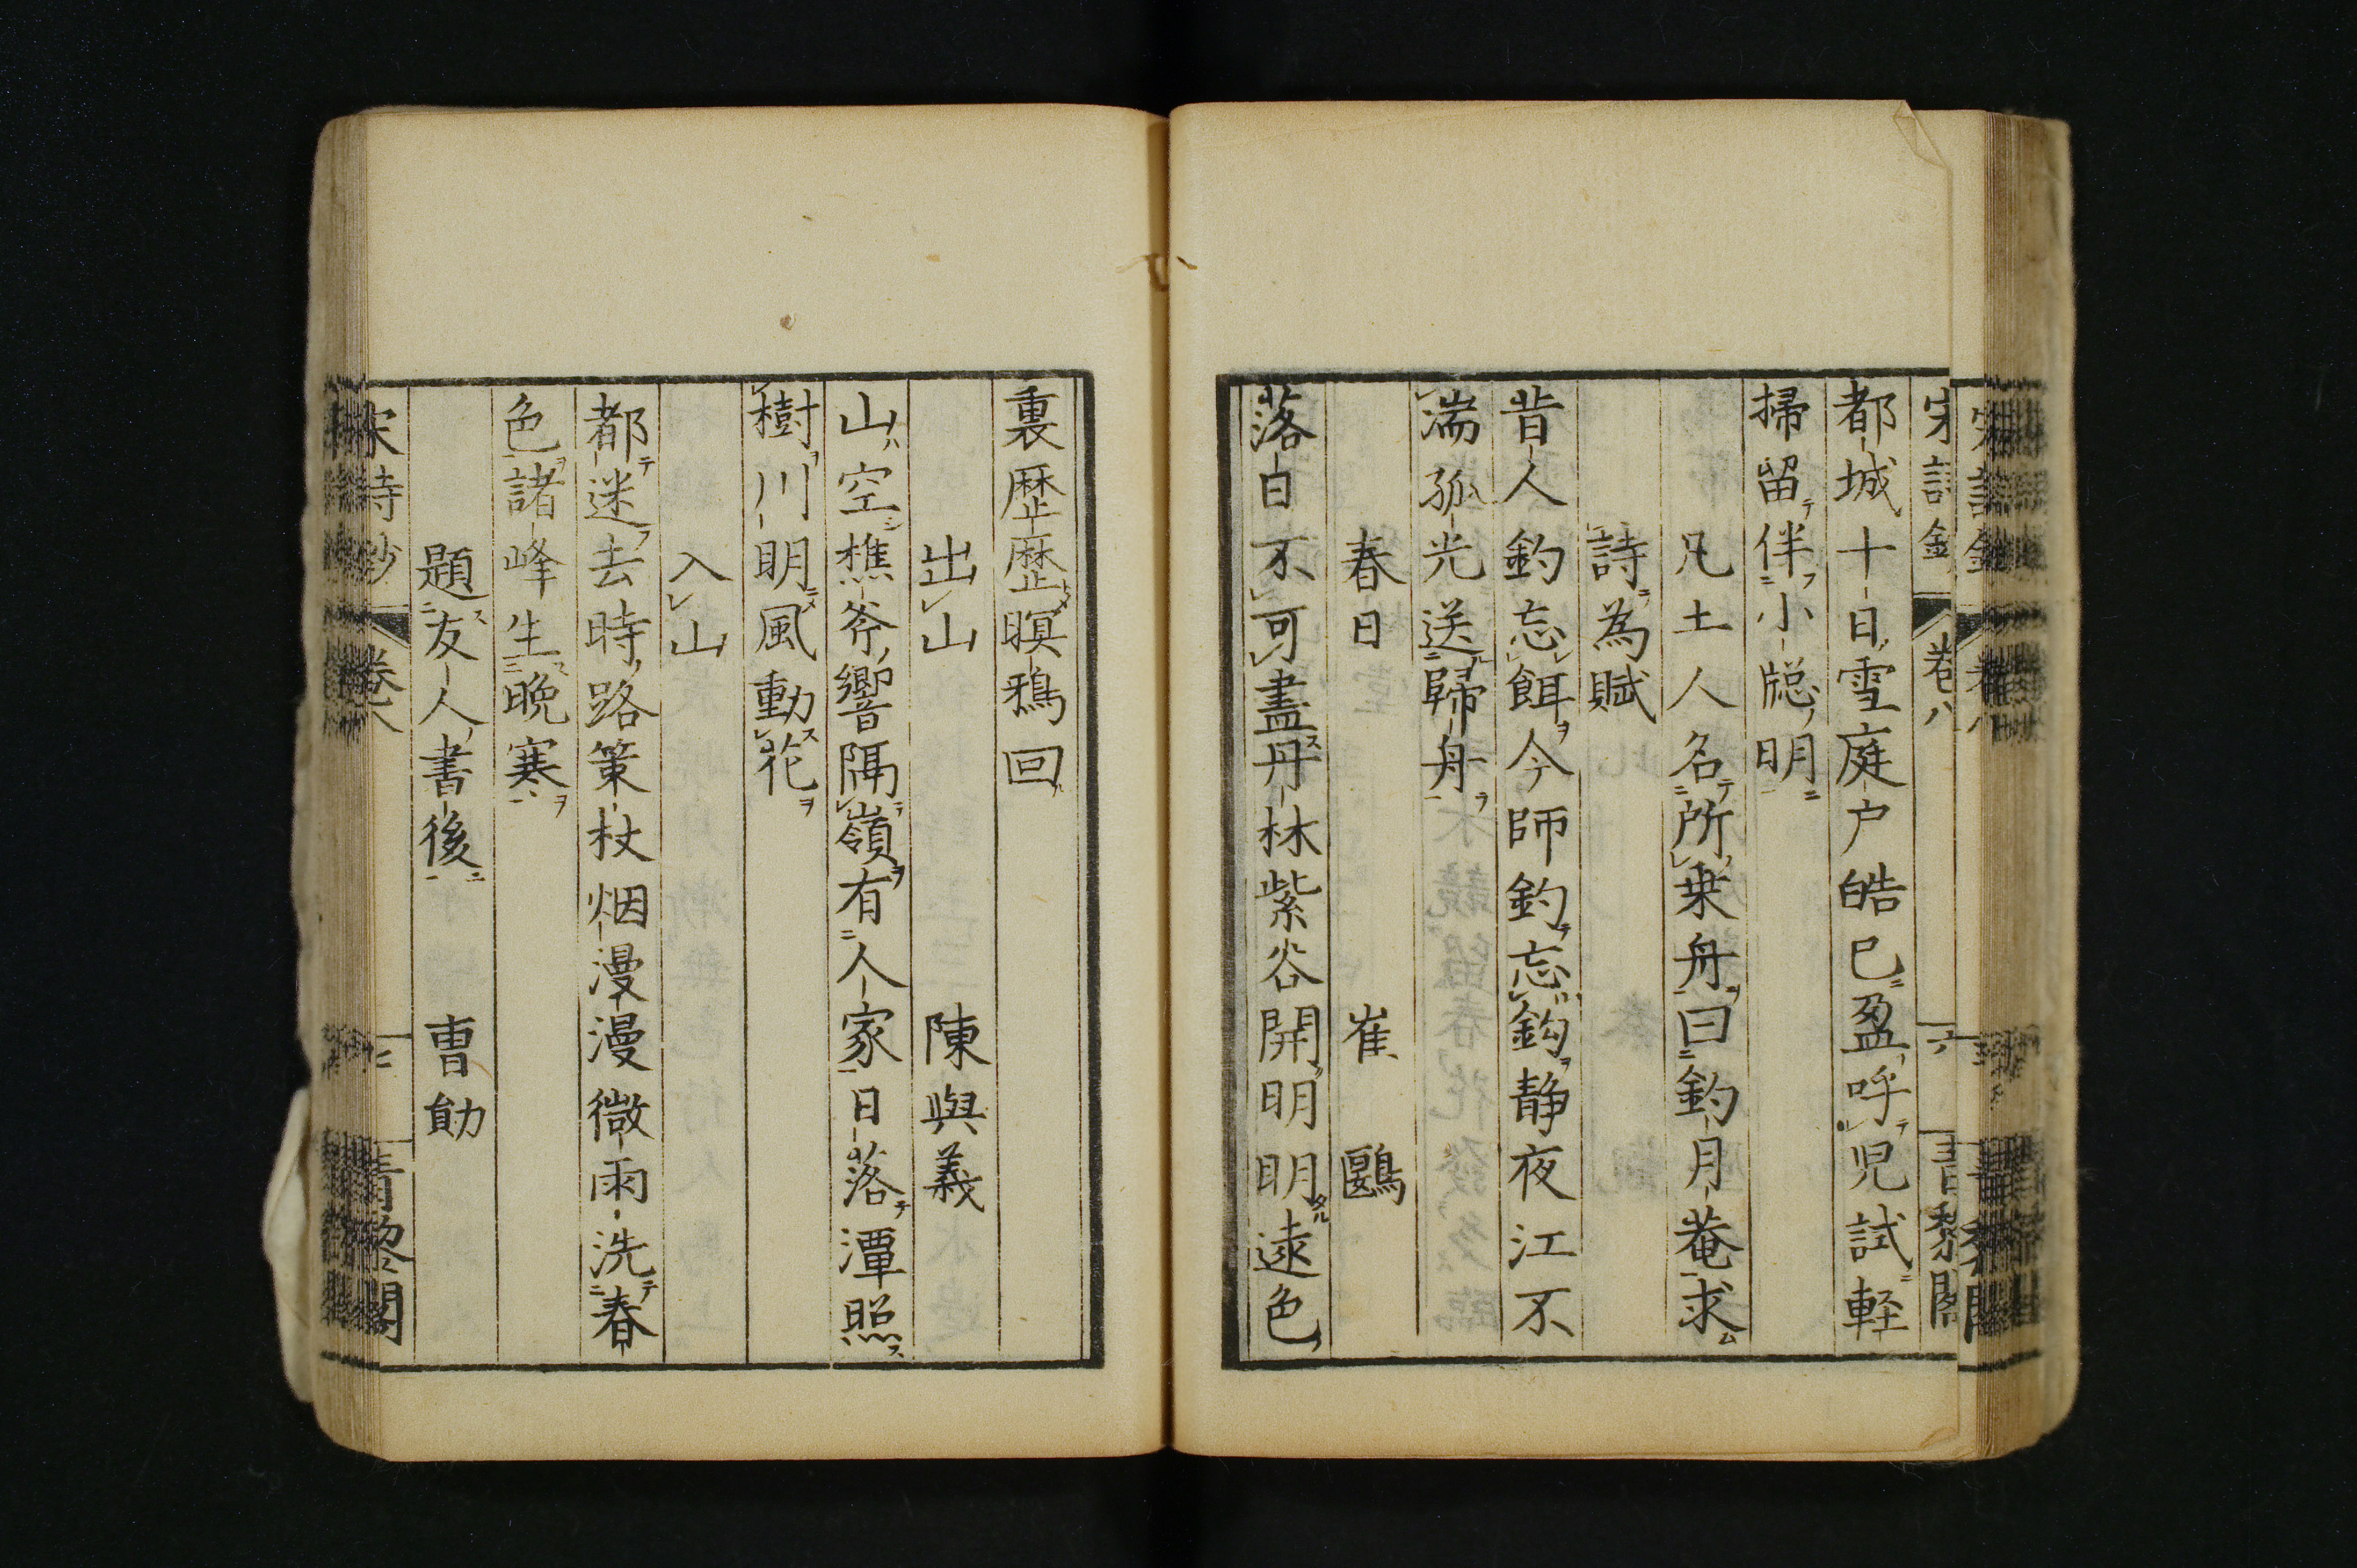 都城十日雪庭户皓巳盈呼児試軽
掃留伴小牎明
凡土人名所乗舟曰釣月菴求
詩為賦
昔人釣忘餌今師釣忘鈎静夜江不
湍孤光送歸舟
春日 崔鷗
落日不可盡丹林紫谷開明明遠色
裏歴歴暝鴉回
出山 陳與義
山空樵斧響隔嶺有人家日落潭照
樹川明風動花
入山
都迷去時路策杖烟漫漫微雨洗春
色諸峰生晩寒
題友人書後 曺勛
宋詩鈔 卷八
青黎閣